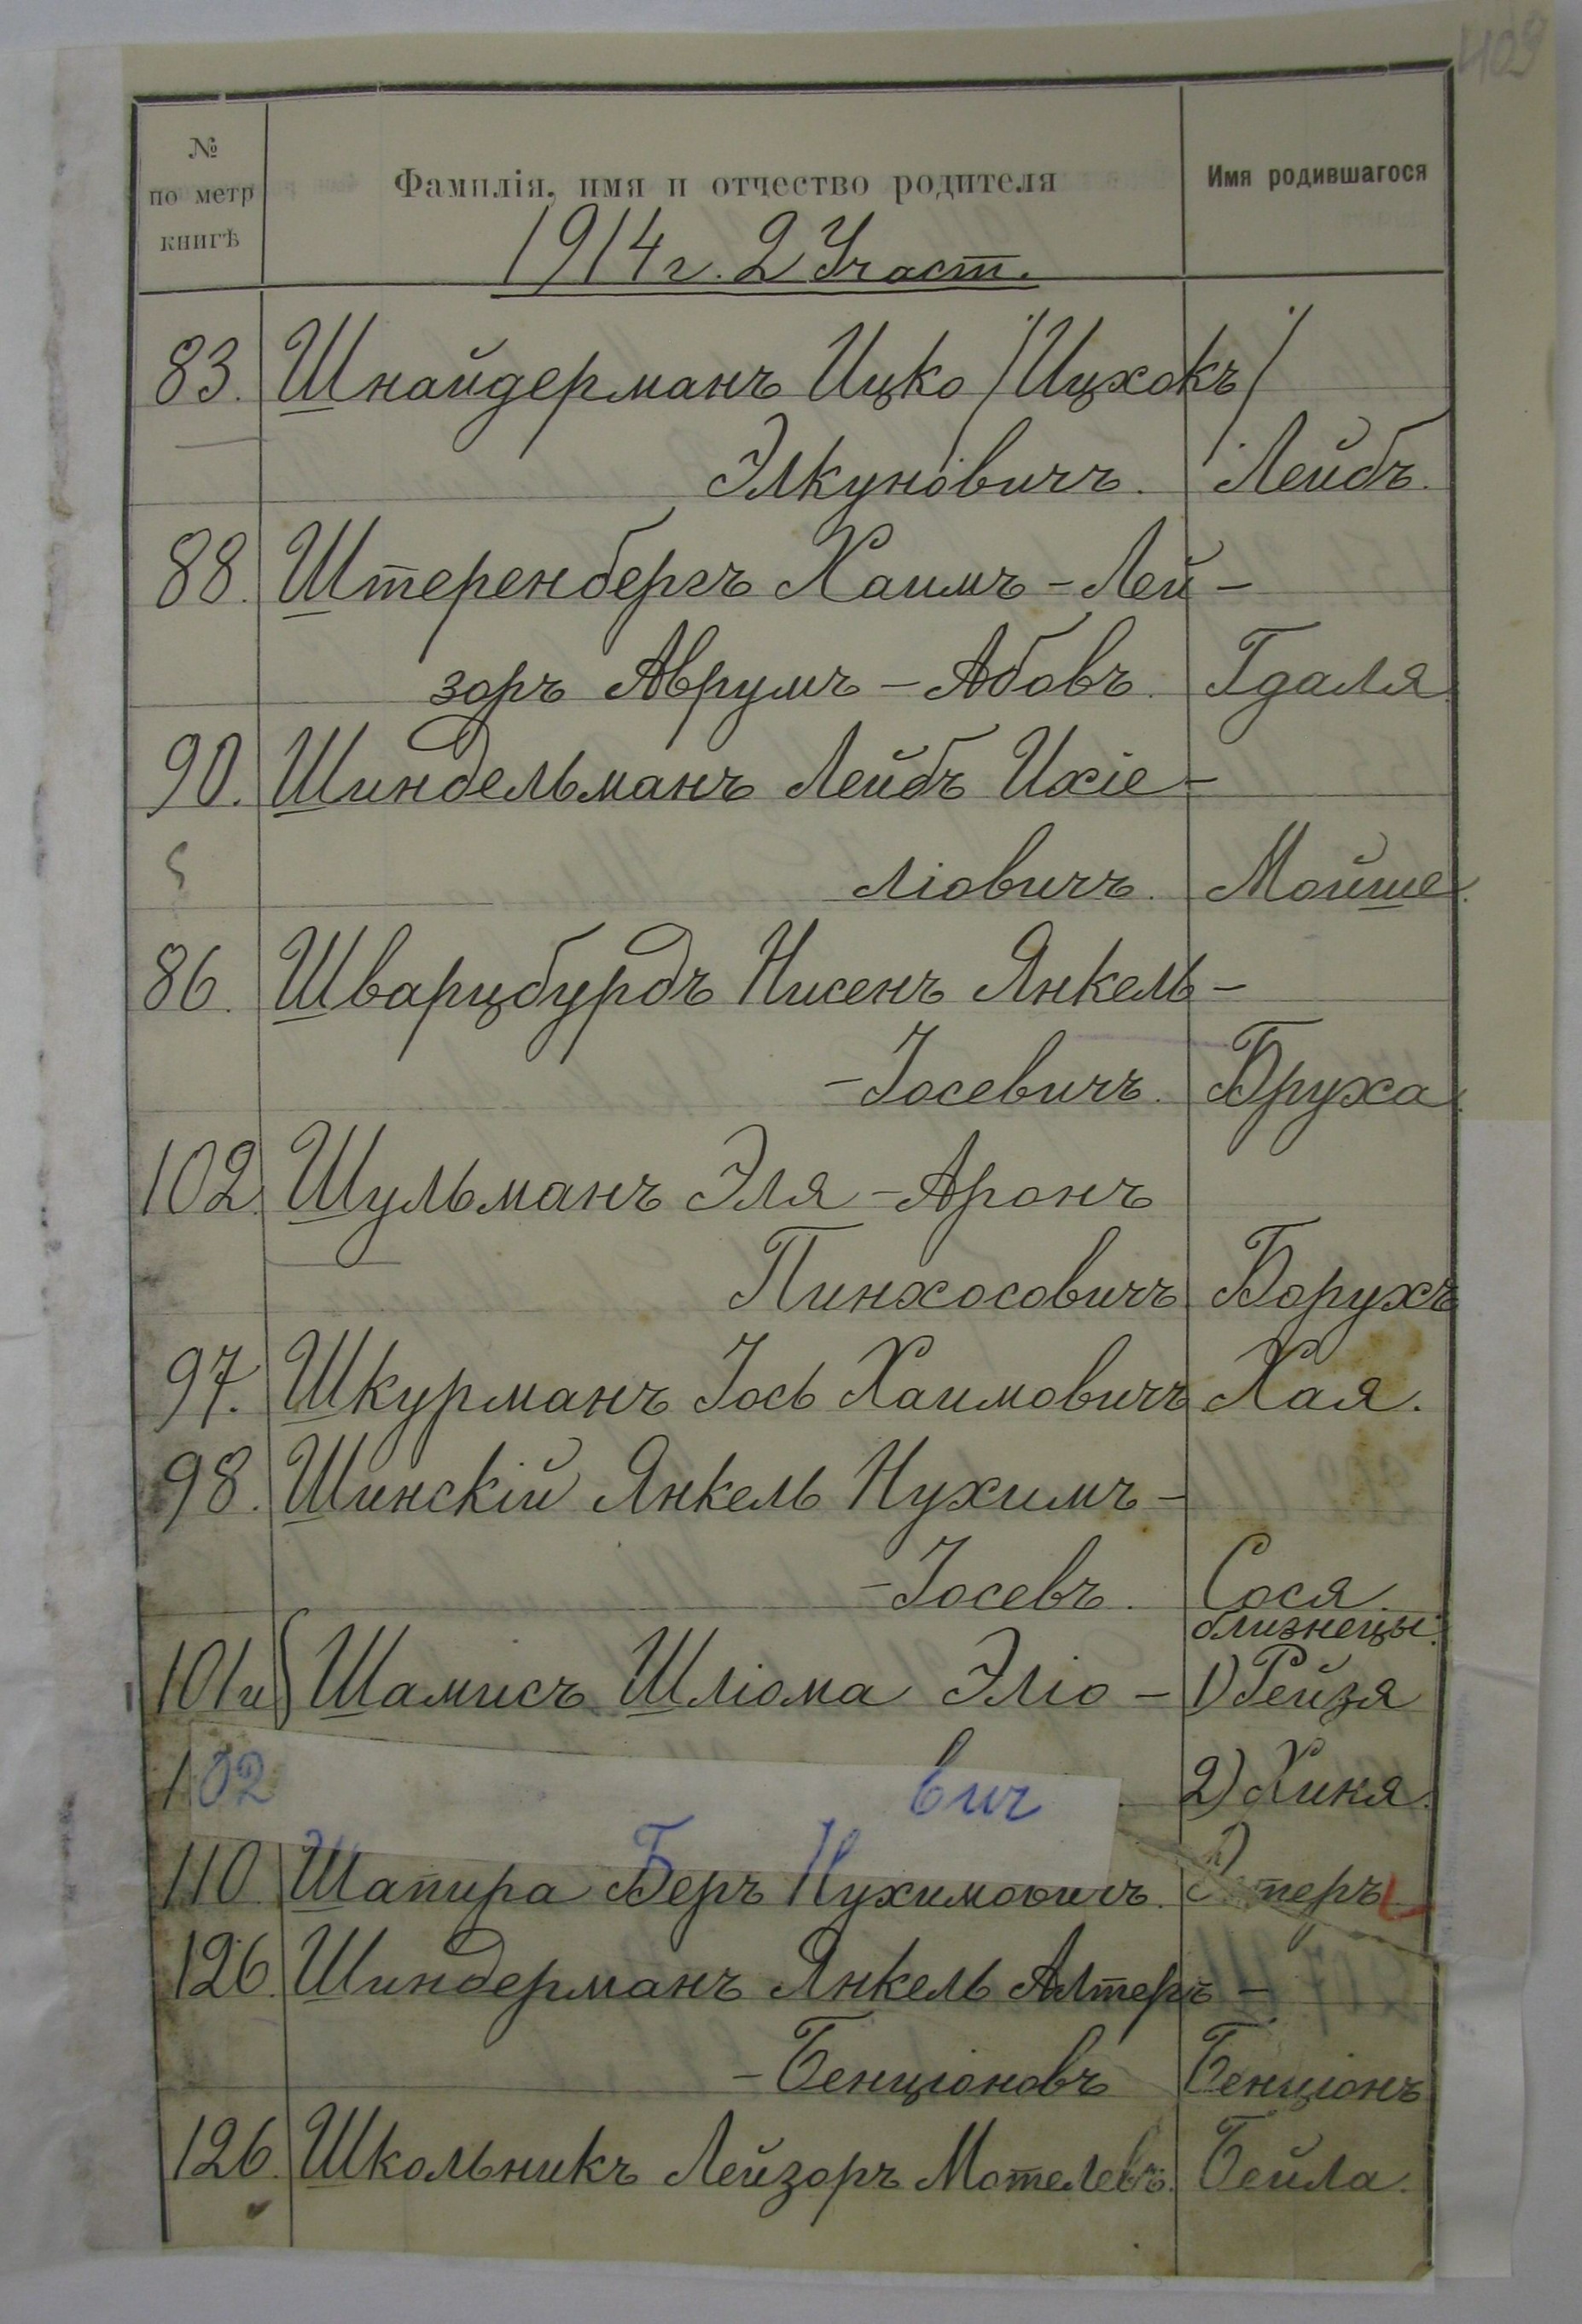 409
№ по метр книгѣ
Фамилія, имя и отчество родителя
Имя родившагося
1914 г. 2 Участ.
83. Шнайдерманъ Ицко /Ицхокъ/
Элкуновичъ. Лейбъ.
88. Штеренбергъ Хаимъ-Лей-
зоръ Аврумъ-Абовъ. Гдаля.
90. Шиндельманъ Лейбъ Ихіе-
ліовичъ. Мойше.
86. Шварцбурдъ Нисенъ Янкель-
-Іосевичъ. Бруха.
102. Шульманъ Эля-Аронъ
Пинхосовичъ. Борухъ
97. Шкурманъ Іось Хаимовичъ Хая.
98. Шинскій Янкель Нухимъ-
-Іосевъ. Сося.
близнецы:
101 и Шамисъ Шліома Эліо- 1) Рейзя
102 вич 2) Хикя.
110 Шапира Беръ Нухимовичъ.
126. Шиндерманъ Янкель Алтеръ-
-Бенціоновъ Бенціонъ
126. Школьникъ Лейзоръ Мотелевъ. Бейла.